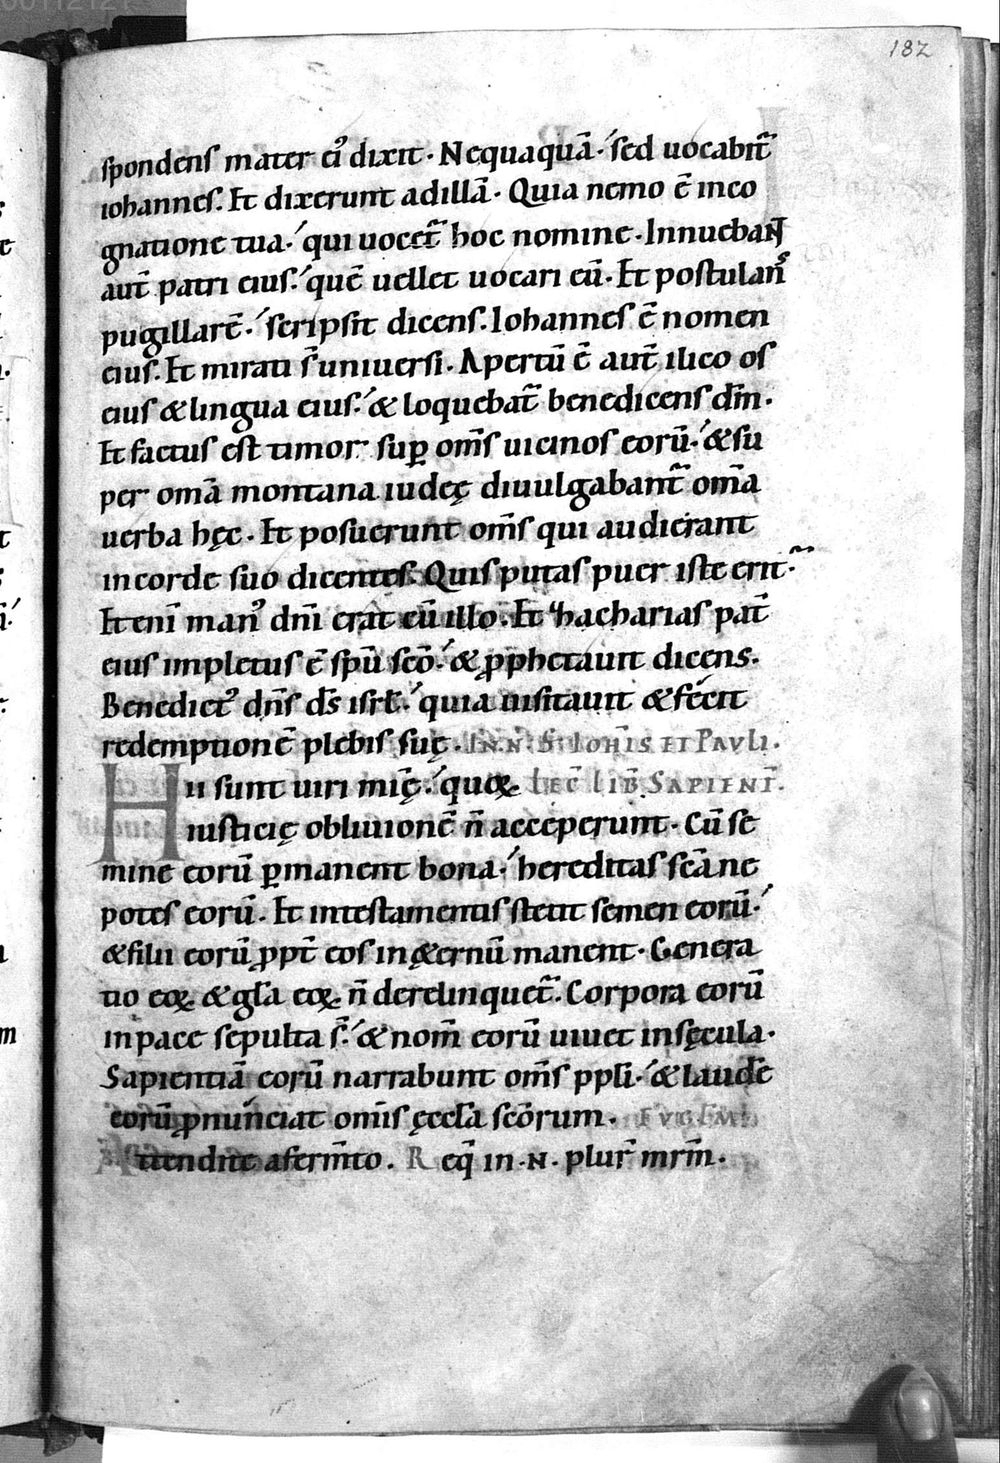 00112121
182
spondens mater ei᾽ dixit · Nequaquā · sed uocabit̄
iohannes. Et dixerunt ad illā · Quia nemo ē in co
gnatione tua · qui uocet̄ hoc nomine · Innuebant
aut̄ patri eius · quē uellet uocari eū · Et postulans
pugillarē · scripsit dicens. Iohannes ē nomen
eius. Et mirati s̄ uniuersi. Apertū ē aut̄ ilico os
eius & lingua eius · & loquebat̄ benedicens dm̄.
Et factus est timor sup̱ om̄s uicinos eorū · & su
per om̄a montana iudeę diuulgabant̄ om̄a
uerba hęc. Et posuerunt om̄s qui audierant
in corde suo dicentes. Quis putas puer iste erit ·
Et eni̅ man᾽ dn̄i erat cū illo. Et zhacharias pat̄
eius impletus ē sp̄u sc̄o · & ꝓphetauit dicens.
Benedict᾽ dn̄s ds̄ isrł · quia uisitauit & fecit
redemptionē plebis suę. IN.N. S. IOHIS ET PAVLI.
Hii sunt uiri mīę · quoꝝ LEC̄ LIB̄ SAPIENT̄.
iusticię obliuionē n̄ acceperunt · Cū se
mine eorū ꝑmanent bona · hereditas sc̄a ne
potes eorū. Et in testamentis stetit semen eorū ·
& filii eorū ꝓpt̄ eos in &ernū manent · Genera
tio eoꝝ & gła eoꝝ n̄ derelinquet̄. Corpora eorū
in pace sepulta s̄ · & nom̄ eorū uiuet in sęcula.
Sapientiā eorū narrabunt om̄s ppłi · & laudē
eorū ꝓnunciat omīs ęccła sc̄orum.
ttendite a ferm̄to. R eq̄ in .N. plur̄ mr̄m.